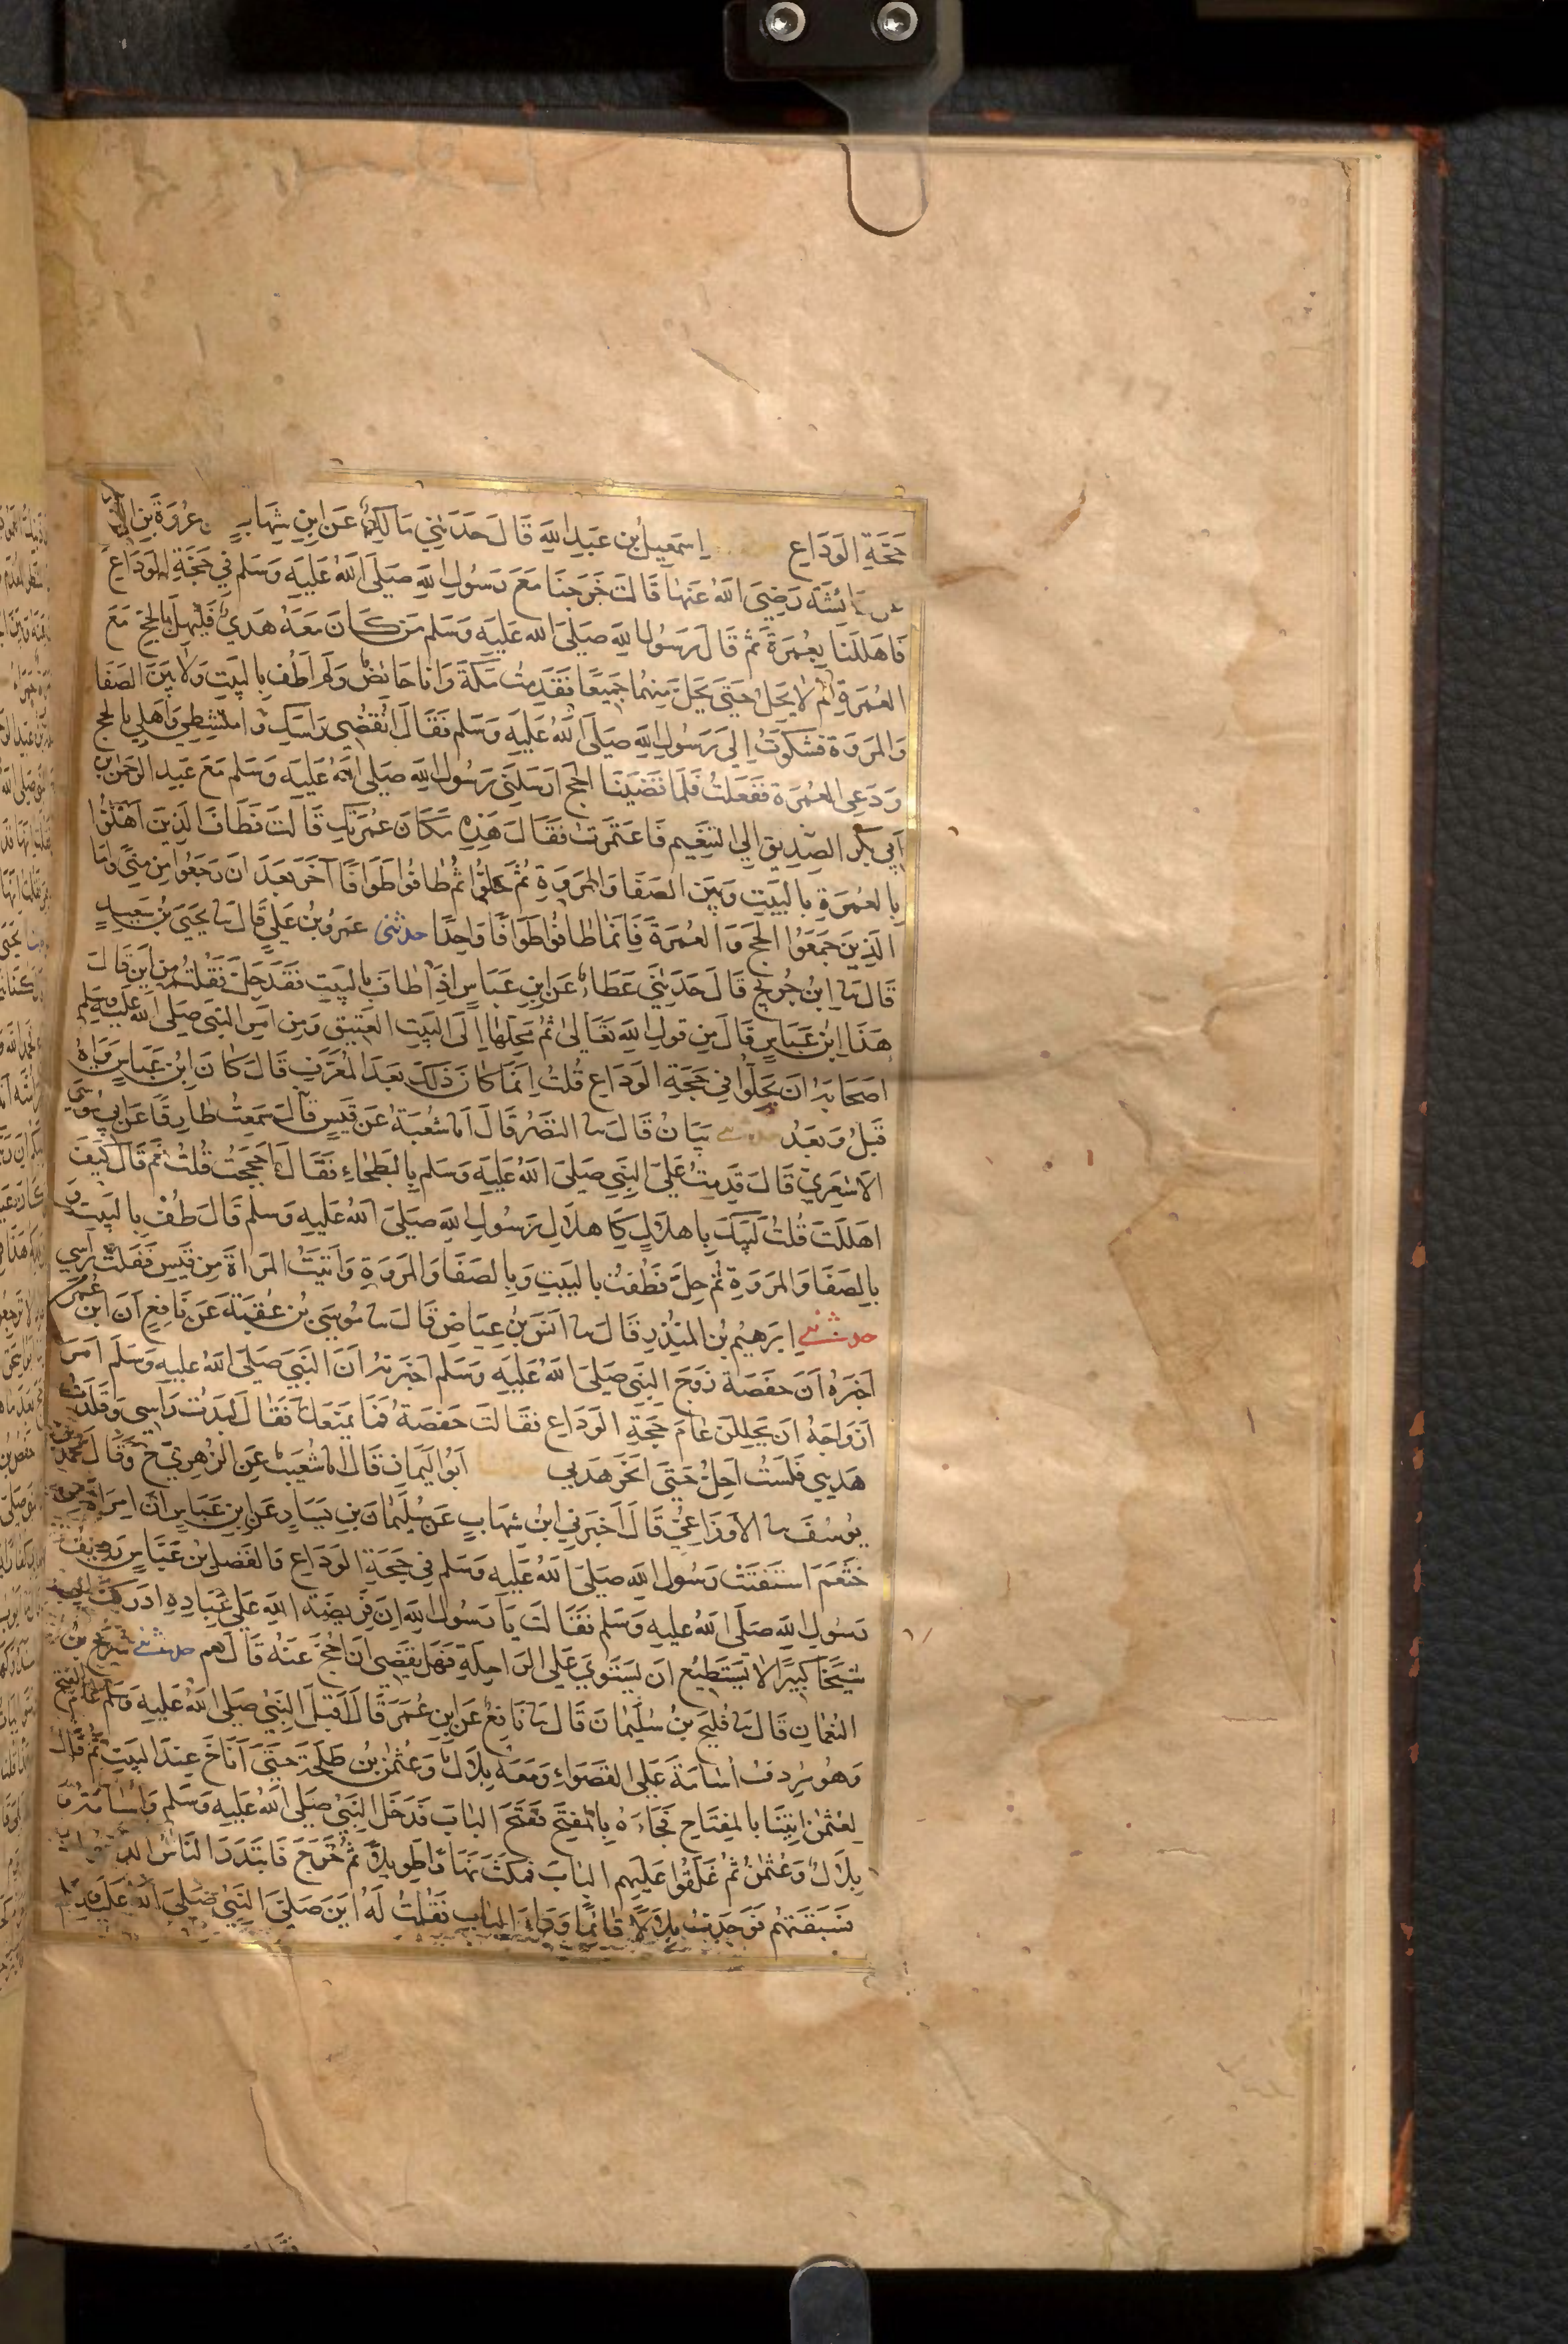 حَجَّةِ الوَدَاعِ اِسمٰعِيلُ بن عَبدِ اللهِ قَالَ حَدَثَنِي مَالِكٌ عَن ابنِ شِهَابٍ عن عُروَةَ بنِ الزُّبَيرِ
عن عَائشَه رَضِيَ اللهُ عَنهَا قَالَت خَرَجنَا مَعَ رَسُولِ اللهِ صَلَى اللهُ عَلَيهِ وَسَلم فِي حَجَّةِ الوَدَاعِ
فَاهلَلنَا بِعُمرَةٍ ثم قَالَ رَسُولُ اللهِ صَلَى الله عَلَيهِ وَسَلم مَن كَانَ مَعَهُ هَديٌ فَليُهِلَّ بِالحَجِّ مَعَ
العُمرَةِ ثُم لَا يَحِلُّ حَتىَ يَحِلَّ مِنهُما جَمِيعًا فَقَدِمتُ مَكَّةَ وَانَا حَائِضٌ وَلَم اَطُف بِالبَيتِ وَلا بَينَ الصَفَا
وَالمَروَة فشَكَوتُ اِلىَ رَسُولِ اللهِ صَلَى اللهُ عَلَيهِ وَسَلم فَقَالَ انقُضِي رَاسَكِ وَامتَشِطِي وَاَهِلِي بالحج
وَدَعِي العُمرَة فَفَعَلتُ فَلَمَا قَضَينَا الحَج اَرسَلَنِي رَسُولُ اللهِ صَلَى اللهُ عَلَيهِ وَسَلم مَعَ عَبدِ الرَحمٰنِ بنِ
اَبِي بَكرٍ الصِدِيق اِلى التَنعِيم فَاعتَمرتُ فَقَالَ هَذِهِ مَكَانَ عُمرَتِكِ قَالَت فَطَافَ الذِينَ اَهَلُّوا
بِالعُمرَةِ بِالبَيتِ وَبَينَ الصَفَا وَالمَروَةِ ثُمَّ حَلُّوا ثُم طَافُوا طَوَافًا آخَرَ بَعدَ اَن رَجَعُوا مِن مِنىً وَاَمَا
الَذِينَ جَمَعُوا الحَج وَالعُمرَةَ فَاِنَمَا طَافُوا طَوَافًا وَاحِدًا حدثني عَمرُو بنُ عَليٍّ قَالَ ثنا يَحيَى بنُ سَعِيدٍ
قَالَ ثنا ابنُ جُرَيجٍ قَالَ حَدَثَنِي عَطَاءٌ عَن ابنِ عَبَاسٍ اِذَا طَافَ بِالبَيتِ فَقَد حَلَّ فَقُلتُ مِن اَينَ قَالَ
هَذَا ابنُ عَبَاسٍ قَالَ مِن قَولِ اللهِ تَعَالىٰ ثُمَّ مَحِلُّهَا اِلَى البَيتِ العَتِيقِ وَمِن اَمرِ النَبِي صَلَى اللهُ عَلَيهِ وَسَلم
اصحَابَهُ اَن يَحِلُّوا فِي حَجَّةِ الوَدَاعِ قُلتُ اِنَمَا كَانَ ذَلِكَ بَعدَ المُعَرَّفِ قَالَ كَانَ ابنُ عَبَاسٍ يَرَاهُ
قَبلُ وَبَعدُ حدثني بَيَانٌ قَالَ ثنا النَضرُ قَالَ انا شُعبَةُ عَن قَيسٍ قَالَ سَمِعتُ طَارِقًا عَن اَبِي مُوسَى
الاَشعَرِيِّ قَالَ قَدِمتُ عَلَى النَبِي صَلَىَ اللهُ عَلَيهِ وَسَلم بِالبَطحَاءِ فَقَالَ اَحَجَجتَ قُلتُ نَعَم قَالَ كَيفَ
اهلَلتَ قُلتُ لَبَيكَ بِاهلَالٍ كَاِهلَالِ رَسُولِ اللهِ صَلَىَ اللهُ عَلَيهِ وَسَلَم قَالَ طُف بِالبَيتِ وَ
بِالصَفَا وَالمَروَةِ ثُم حِلَّ فَطُفتُ بِالبَيتِ وَبِالصَفَا وَالمَروَةِ وَاَتَيتُ المَراَةً مِن قَيسٍ فَفَلَت رَاسِي
حدثني اِبرَهِيمُ بنُ المُنذِرِ قَالَ ثنا اَنَسُ بنُ عِيَاضٍ قَالَ ثنا مُوسَى بنُ عُقبَةَ عَن نَافِعٍ اَنَ ابنَ عُمَرَ
اَخبَرَهُ اَنَ حَفصَةَ زَوجَ النَبِي صَلَى اللهُ عَلَيهِ وَسَلم اَخبَرَتهُ اَنَ النَبِيَ صَلَى اللهُ عَليهِ وَسَلَم اَمَرَ
اَزوَاجَهُ اَن يَحلِلنَ عَامَ حَجَّةِ الوَدَاعِ فَقَالَت حَفصَةُ فَمَا يَمنَعُكَ فَقَالَ لَبَدتُ رَاسِي وَقَلَدتُ
هَديِي فَلَستُ اَحِلُّ حَتىَ اَنحَرَ هَديِي اَبُو اليَمَانِ قَالَ انا شُعَيبٌ عَنِ الزُهرِيِّ ح وَقَالَ مُحَمدُ بن
يُوسُفَ ثنا الاَوزَاعِيُّ قَالَ اَخبَرَنِي ابنُ شِهَابٍ عَن سُلَيمَانَ بنِ يَسَارٍ عَن ابنِ عَبَاسٍ اَنَّ امرَاَةً مِن
خَثعَمَ استَفتَت رَسُولَ اللهِ صَلَىَ اللهُ عَلَيهِ وَسَلم فِي حَجَّةِ الوَدَاعِ وَالفَضلُ بنُ عَبَّاسٍ رَدِيفُ
رَسُولِ اللهِ صَلَّى اللهُ عَلَيهِ وَسَلم فَقَالَت يَا رَسُولَ اللهِ اِنَ فَرِيضَةَ اللهِ عَلى عِبَادِهِ ادرَكَت ابي
شَيخًا كَبِيرًا لا يَستَطِيعُ اَن يَستَوِيَ عَلى الرَاحِلَةِ فَهَل يَقضِي اَن اَحُجَّ عَنهُ قَالَ نعم حدثني سُرَيجُ بنُ
النُعمَانِ قَالَ ثنا فُلَيحُ بنُ سُلَيمَانَ قَالَ ثنا نَافِعٌ عَن ابنِ عُمَرَ قَالَ اَقبَلَ النَبِيُّ صَلَى اللهُ عَلَيهِ وَسَلم عَامَ الفَتحِ
وَهُو مُردِفٌ اُسَامَةَ عَلَى القَصوَاءِ وَمَعَهُ بِلَالٌ وَعُثمٰنُ بنُ طَلحَةَ حَتَّى اَنَاخَ عِندَ البَيتِ ثُم قَالَ
لِعُثمٰنَ ايتِنَا بِالمِفتَاحِ فَجَاءَهُ بِالمِفتَح فَفَتَحَ البَابَ فَدَخَلَ النَبِيُّ صَلَى اللهُ عَلَيهِ وَسَلم وَاُسَامَةُ وَ
بِلَالٌ وَعُثمٰنُ ثُم غَلَقُوا عَلَيهِم البَابَ فَمَكَثَ نَهَارًا طَوِيلًا ثُم خَرَجَ فَابتَدَرَ النَاسُ الدخول
فَسَبَقتُهُم فَوَجَدتُ بِلَالًا قَائِمًا وَرَاءَ البَابِ فَقُلتُ لَهُ اَينَ صَلَىَ النَبِيُّ صَلَىَ اللهُ عَلَيهِ وَسَلم